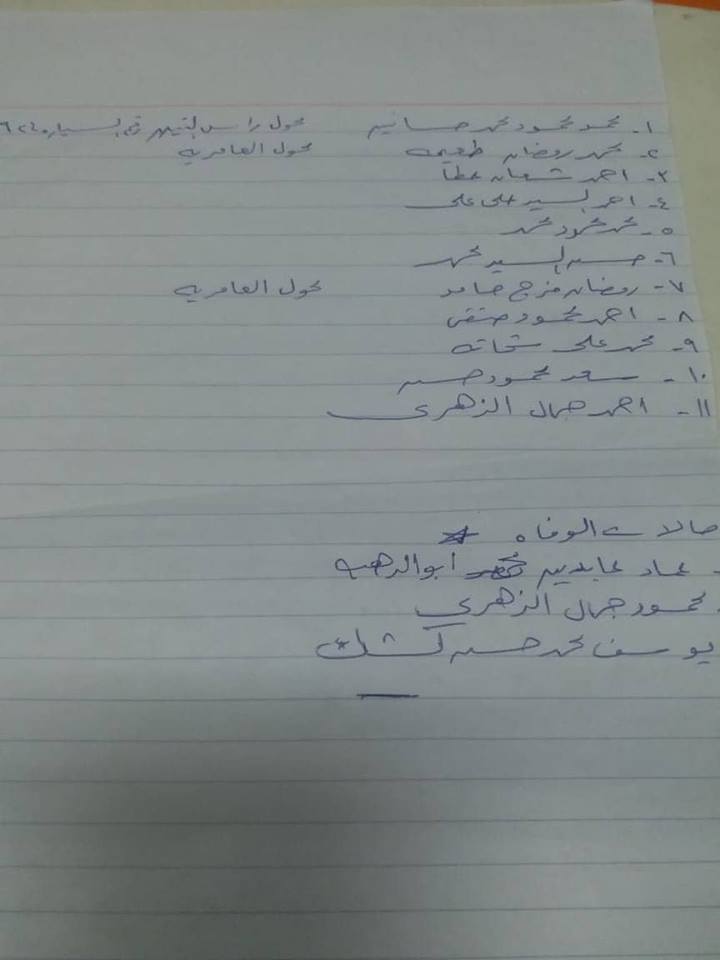 ١- محمد محمود محمد حسانين محول راس التين رقم السيارة
٢- محمد رمضان طعيمه محول العامريه
٣- احمد شعبان عطا
٤- احمد السيد على على
٥- محمد محمود محمد
٦- حسن السيد محمد
٧- رمضان فرج حامد محول العامريه
٨- احمد محمود حنفى
٩- محمد على شحاته
١٠- سعد محمود حسن
١١- احمد جمال الزهرى
حالات الوفاه
- عماد عابدين ابو الدهب
- محمود جمال الزهري
يوسف محمد حسن كشك